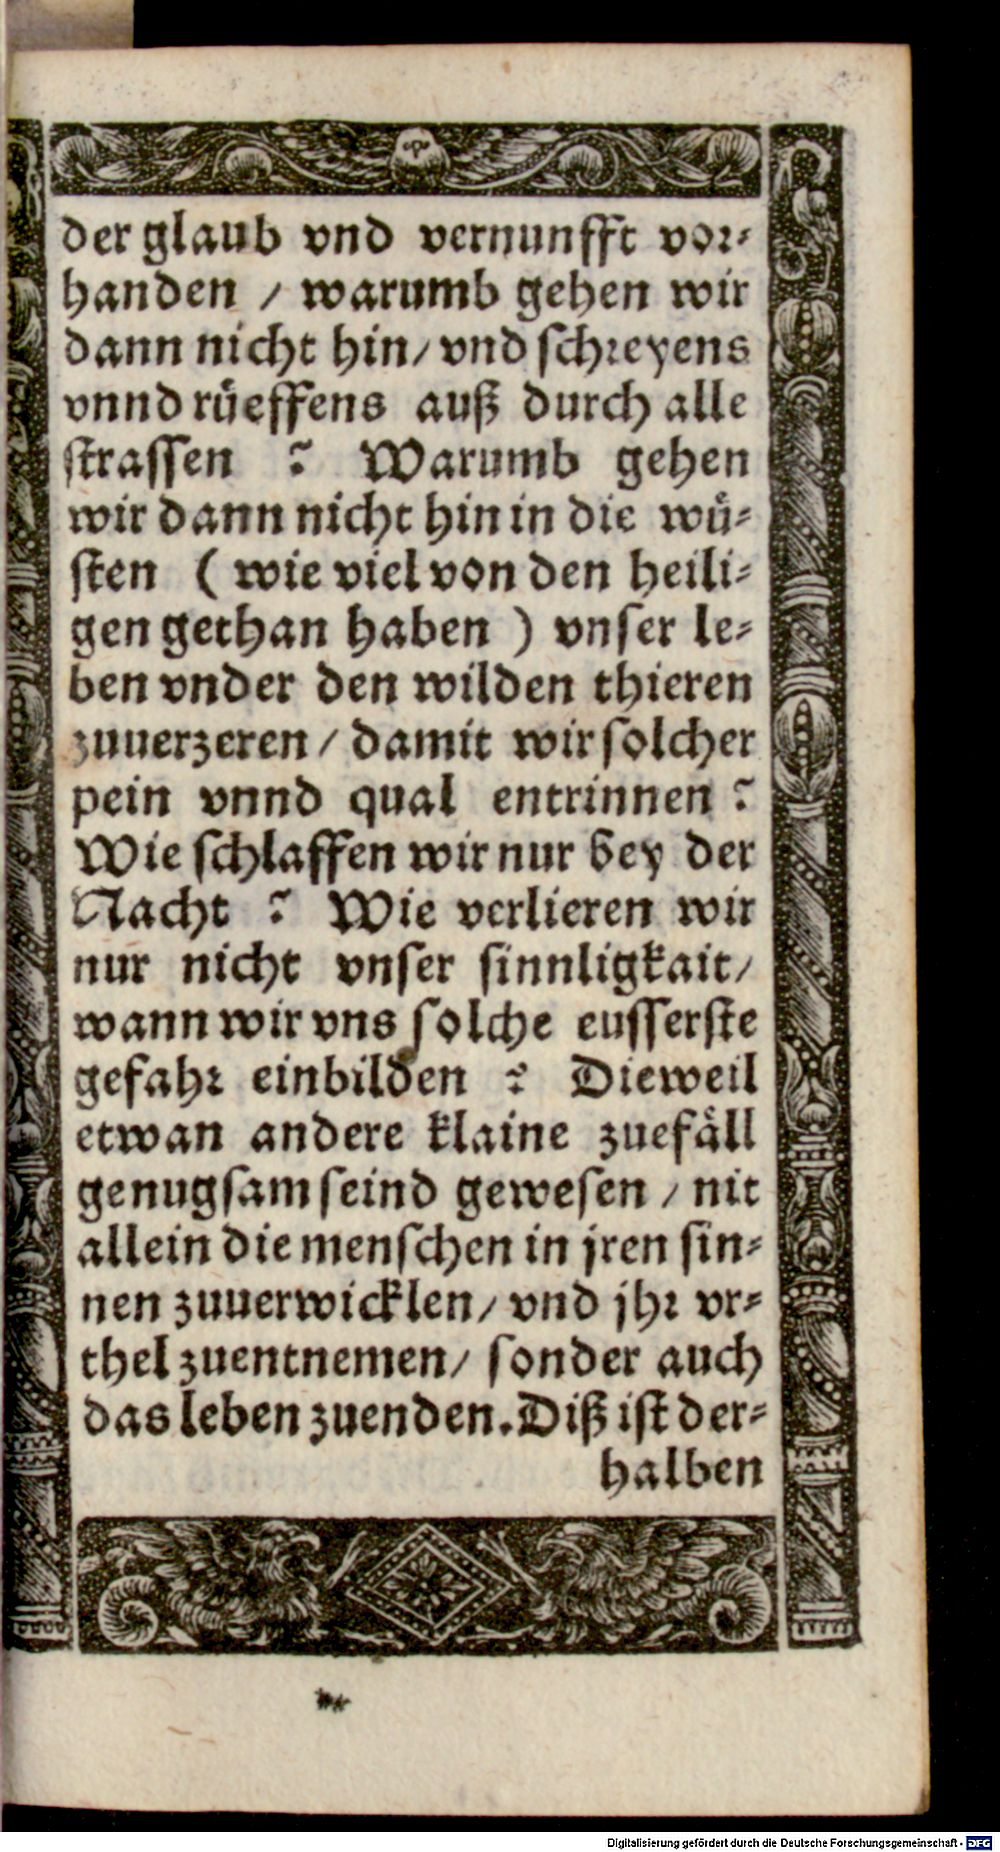 der glaub vnd vernunfft vor-
handen / warumb gehen wir
dann nicht hin / vnd schreyens
vnnd rüeffens auß durch alle
strassen ? Warumb gehen
wir dann nicht hin in die wü-
sten ( wie viel von den heili-
gen gethan haben ) vnser le-
ben vnder den wilden thieren
zuuerzeren / damit wir solcher
pein vnnd qual entrinnen ?
Wie schlaffen wir nur bey der
Nacht ? Wie verlieren wir
nur nicht vnser sinnligkait /
wann wir vns solche eusserste
gefahr einbilden ? Dieweil
etwan andere klaine zuefäll
genugsam seind gewesen / nit
allein die menschen in jren sin-
nen zuuerwicklen / vnd jhr vr-
thel zuentnemen / sonder auch
das leben zuenden. Diß ist der-
halben
Digitalisierung gefördert durch die Deutsche Forschungsgemeinschaft - DFG